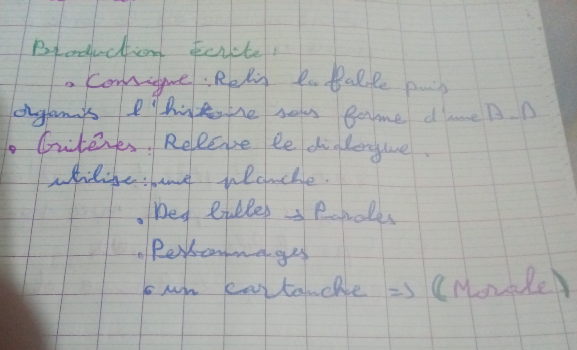 Production écrite :
• Consigne : Relis la fable puis
organis l'histoire sous forme d'une B-D
• Critères : Relève le dialongue.
utilise : une planche.
• Des bulles → Paroles
• Personnages
• un cartouche => (Morale)